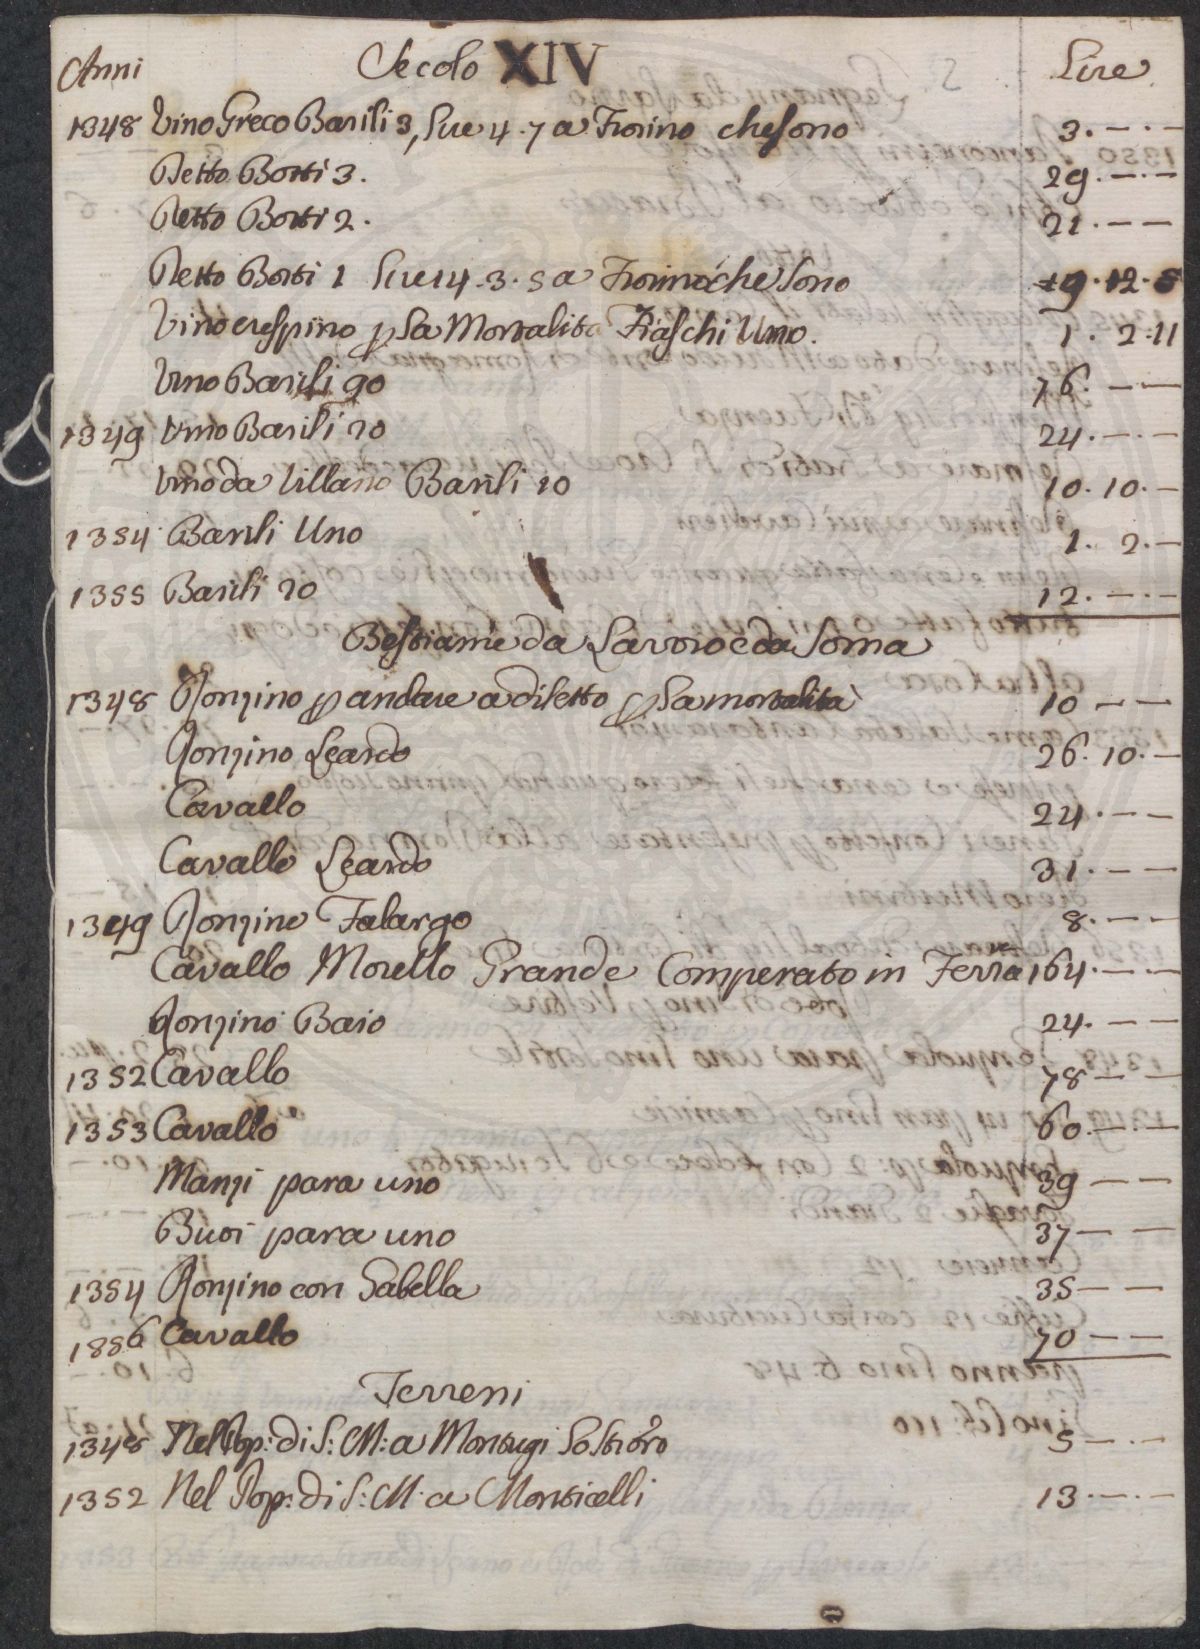 Anni Secolo XIV Lire
1348 Vino Greco Barili 3, Lire 4.7 a Fiorino che sono 3.—.—
Detto Botti 3. 29.—.—
Detto Botti 2. 21.—.—
Detto Botti 1 Lire 14.3.5 a Fiorino che Sono 19.12.5
Vino crespino p La Mortalita Fiaschi Uno. 1.2.11
Vino Barili 90 76.—.—
1349 Vino Barili 20 24.—.—
Vino da Villano Barili 10 10.10.—
1354 Barili Uno 1.2.—
1355 Barili 20 12.—.—
Bestiame da Lavoro e da Soma
1348 Ronzino p andare a diletto p La mortalità 10——
Ronzino Leardo 26.10.—
Cavallo 24.——
Cavallo Leardo 31.——
1349 Ronzino Falargo 8.——
Cavallo Morello Grande Comperato in Terra 164.——
Ronzino Baio 24.——
1352 Cavallo 78——
1353 Cavallo 60.—.—
Manzi para uno 39——
Buoi para uno 37——
1354 Ronzino con Sabella 35——
1356 Cavallo 70——
Terreni
1348 Nel Pop: di S: M: a Montugi Lo Stioro 5—.—
1352 Nel Pop: di S: M: a Monticelli 13.—.—